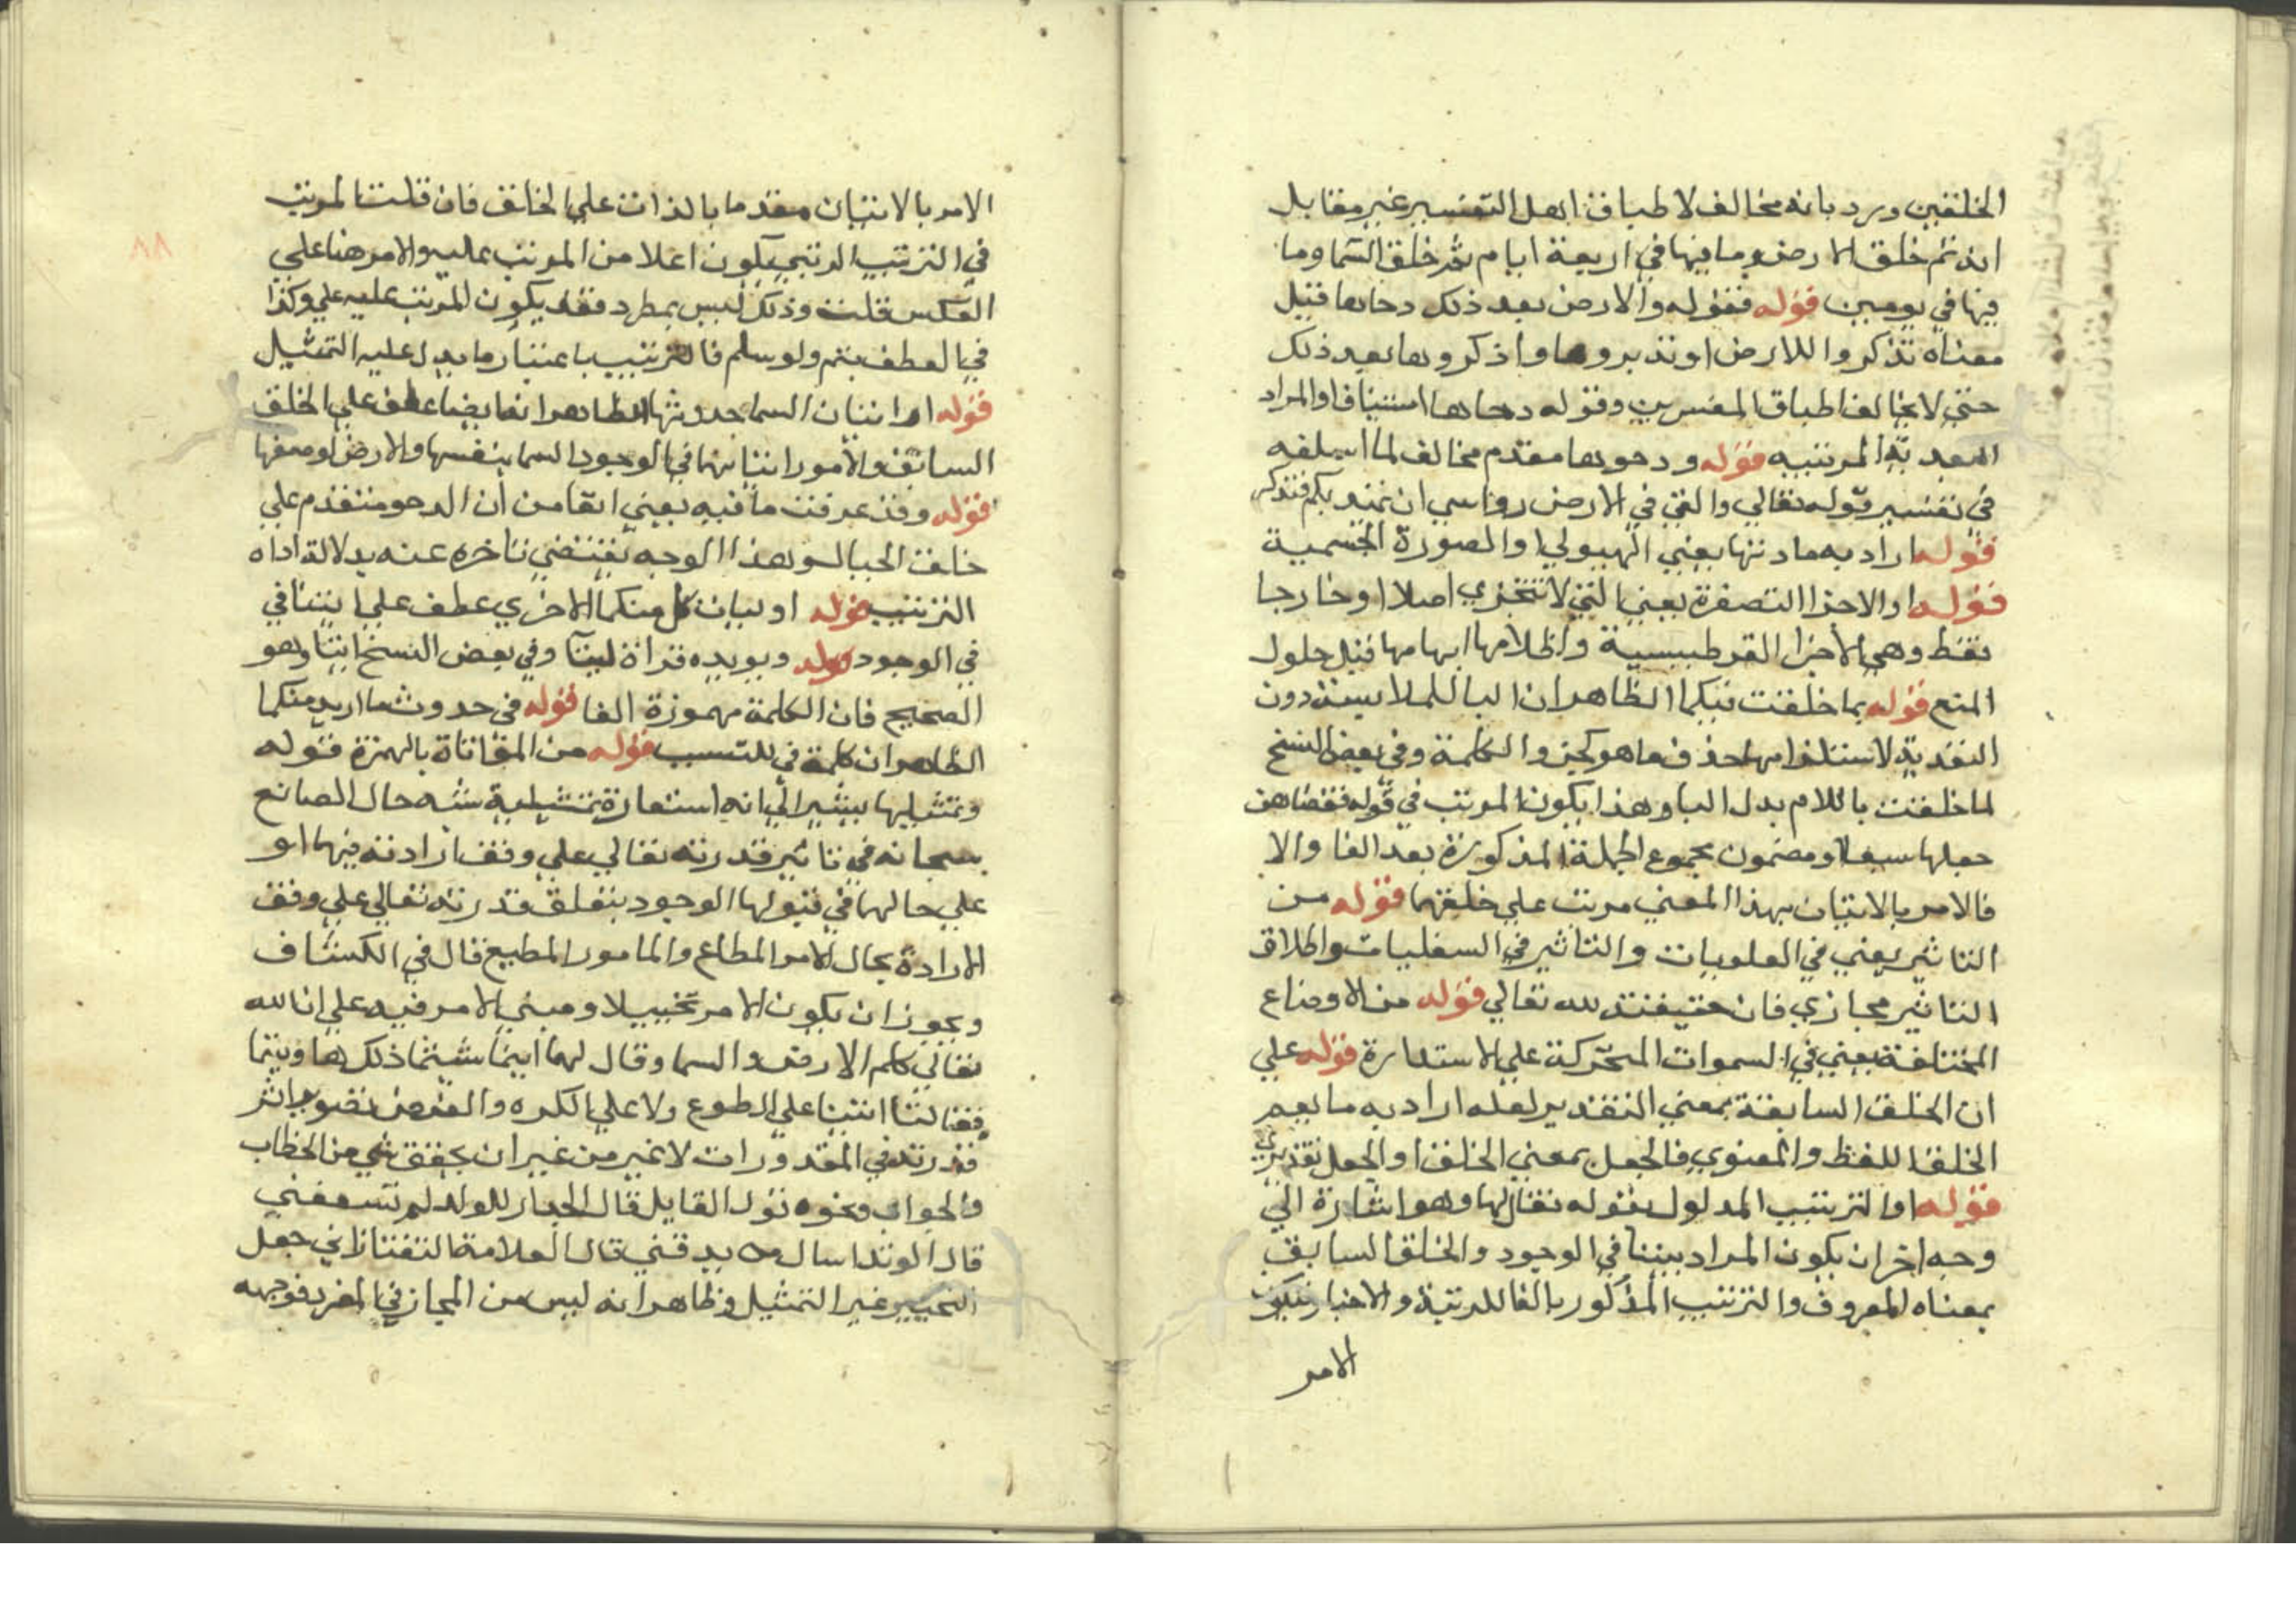 الخلقين ورد بانه مخالف لاطباق اهل التفسير غير مقابل
انه تم خلق الارض وما فيها في اربعة ايام ثم خلق السما وما
فيها في يومين قوله فقوله والارض بعد ذلك دحاها قيل
معناه تذكروا للارض او تدبروها واذكروها بعد ذلك
حتى لا يخالف اطباق المفسرين وقوله دحاها استينافا والمراد
البعدية المرتبيه قوله ودحوها مقدم مخالف لما اسلفه
في تفسير قوله تعالي والقي في الارض رواسي ان تميد بكم فتذكر
قوله اراد به مادتها يعني الهيولي والصورة الجسمية
قوله او الاجزا المتصغرة يعني التي لا تتجزي اصلا او خارجا
فقط وهي الاجزا القرطيسية واظلامها ابهامها قبل حلول
المنع قوله بما خلقت فيكما الظاهر ان البا للملابسة دون
التعدية لاستلزامها حذف ما هو كجزو الكلمة وفي بعض النسخ
لما خلقت باللام بدل البا وهذا يكون المرتب في قوله فقضاهن
جعلها سبعا ومضمون مجموع الجملة المذكورة بعد الفا والا
فالامر بالاتيان بهذا المعني مرتب علي خلقهما قوله من
التاثير يعني في العلويات والتاثير في السفليات واطلاق
التاثير مجازي فان حقيقته لله تعالي قوله من الاوضاع
المختلفة يعني في السموات المتحركة علي الاستدارة قوله علي
ان الخلق السابقة بمعني التقدير لعله اراد به ما يعم
الخلق اللفظ والمعنوي فالجعل بمعني الخلق او الجعل تقديري
قوله او الترتيب المدلول بقوله فقال لها وهو اشارة الي
وجه اخر ان يكون المراد بيننا في الوجود والخلق السابق
بمعناه المعروف والترتيب المذكور بالفا للرتبة والاخبار فيكون
الامر
الامر بالاتيان مقدما بالذات علي الخلق فان قلت المرتب
في الترتيب الرتبي يكون اعلا من المرتب عليه والامر هنا علي
العكس قلت وذلك ليس بمطرد فقد يكون المرتب عليه علي وكذا
في العطف بثم ولو سلم فالترتيب باعتبار ما يدل عليه التمثيل
قوله او اتيان السما حدوثها الظاهر انه ايضا عطف علي الخلق
السابق والامور اتيانها في الوجود السما بنفسها والارض لوصفها
قوله وقد عرفت ما فيه يعني انفا من ان الدحو متقدم علي
خلق الجبال وهذا الوجه يقتضي تاخره عنه بدلالة اداه
الترتيب قوله او ليات كل منكما الاخري عطف علي ايتيا في
في الوجود قوله ويويده قراة اتيا وفي بعض النسخ اتيا وهو
الصحيح فان الكلمة مهموزة الفا قوله في حدوث ما اريد منكما
الظاهر ان كلمة في للتسبب قوله من المؤاتاة بالهمزة قوله
وتمثيلها يشير الي انه استعارة تمثيلية شبه حال الصانع
سبحانه في تاثير قدرته تعالي علي وفق ارادته فيهما او
علي حالهما في قبولها الوجود بتعلق قدرته تعالي علي وفق
الارادة بحال الامر المطاع والمامور المطيع قال في الكشاف
ويجوز ان يكون الامر تخييلا ومبني الامر فيه علي ان الله
تعالي كلم الارض والسما وقال لهما ايتيا شيتما ذلك او ابيتما
فقالتا اتينا علي الطوع ولا علي الكره والغرض تصوير اثر
قدرته في المقدورات لا غير من غير ان يحقق شي من الخطاب
والجواب ونحوه قول القايل قال الجدار للوتد لم تشقني
قال الوتد اسال من يدقني قال العلامة التفتازاني جعل
التخييل غير التمثيل وظاهر انه ليس من المجاز في المفرد فوجهه